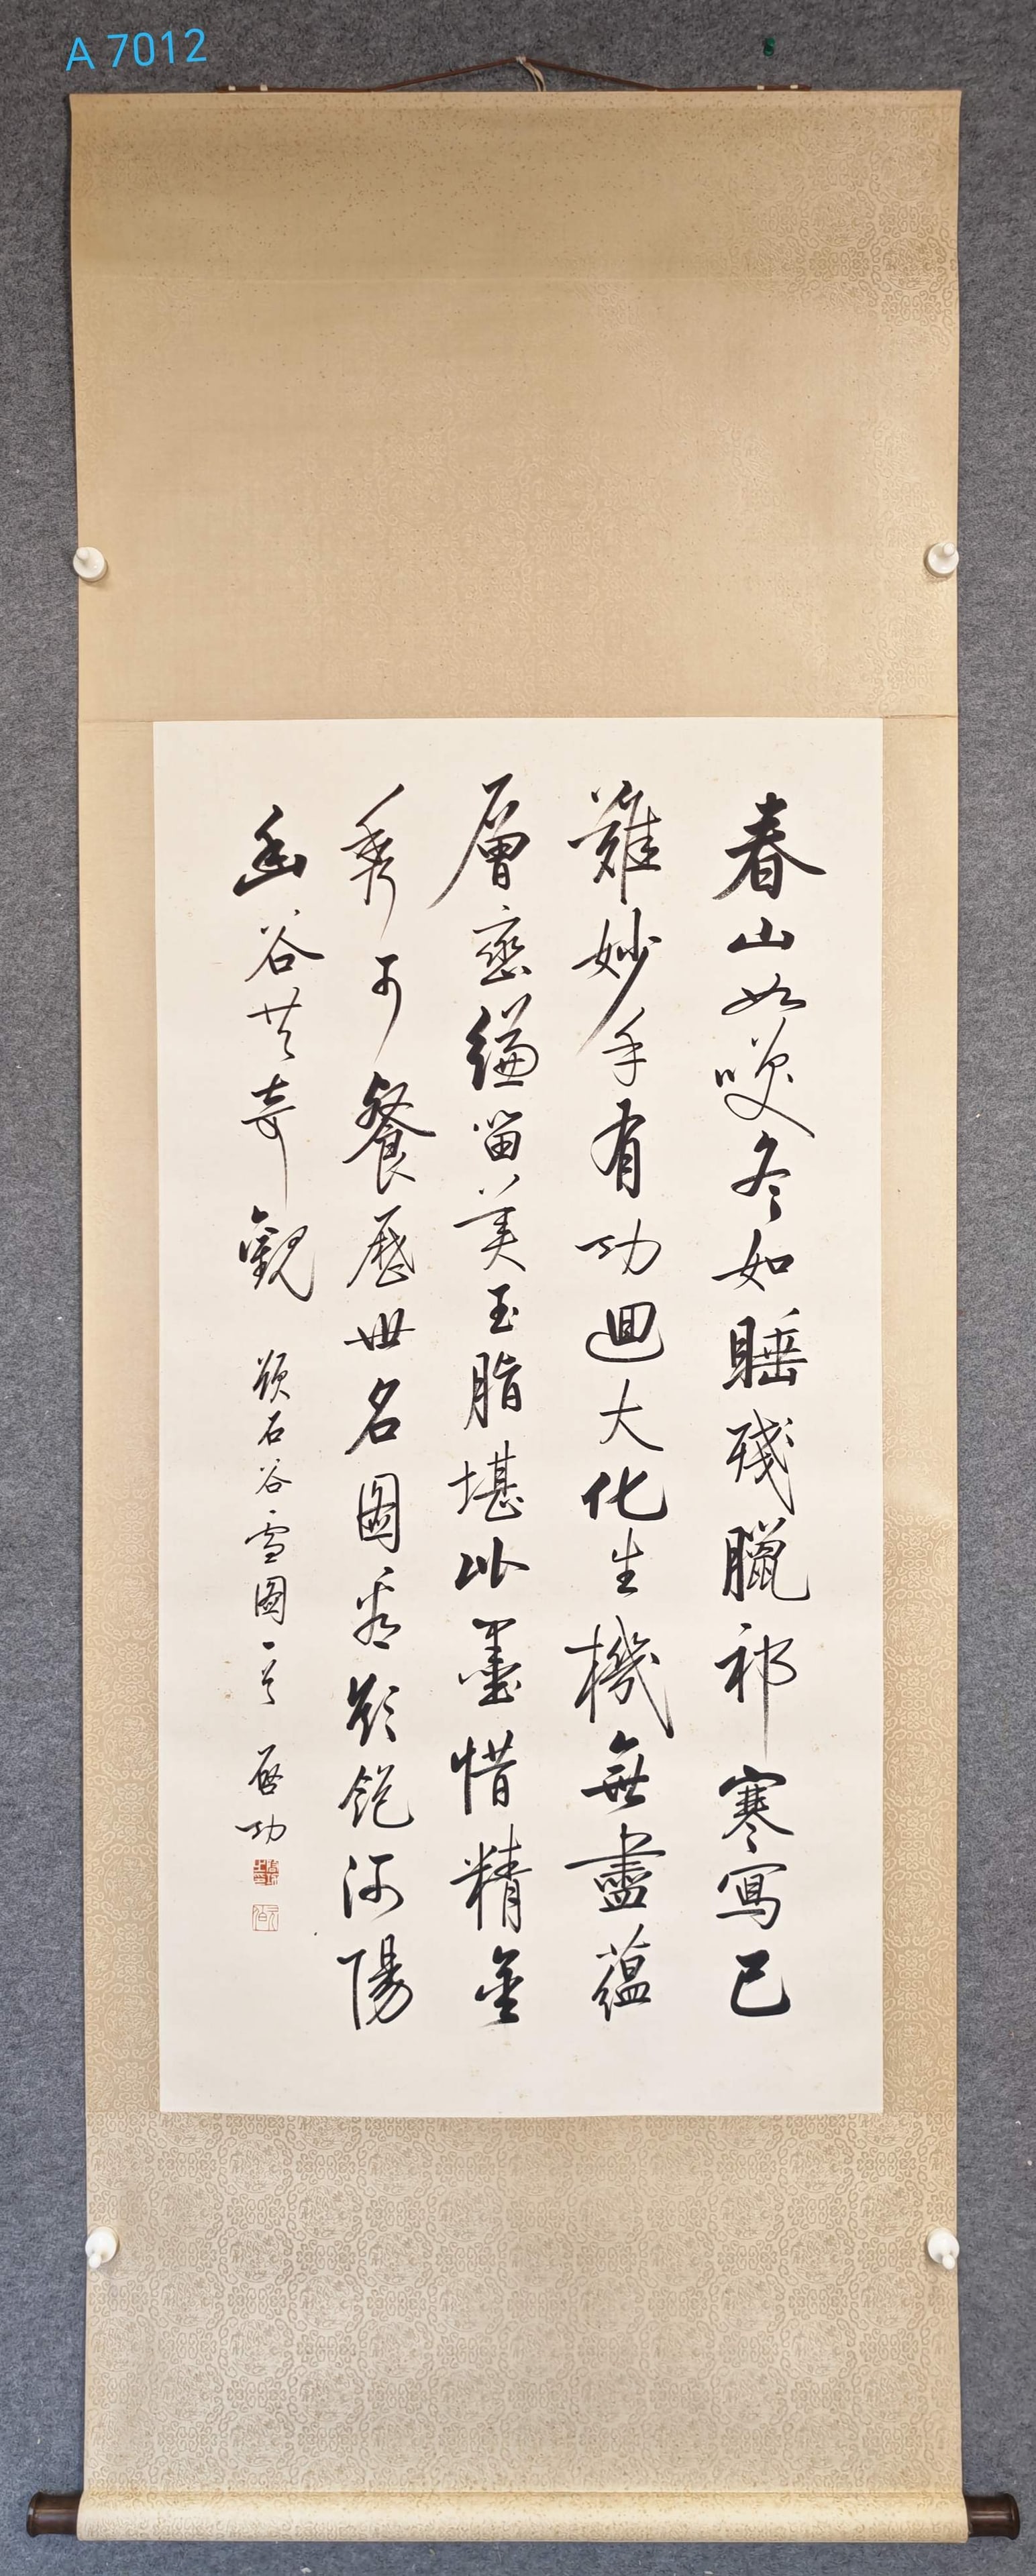 A 7012
春山如咲冬如睡殘臘祁寒寫已
難妙手有功迴大化生機無盡蘊
層巒縑留美玉脂堪比墨惜精金
秀可餐歷世名圖看欲飽河陽
幽谷共奇觀 題石谷雪圖一首 啟功